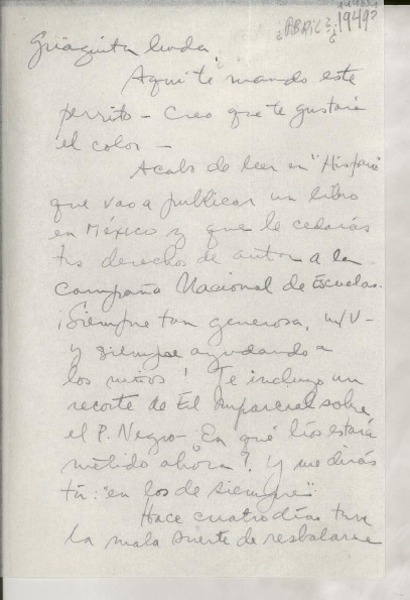 ¿ABRIL? 1949?
linda
Aquí te mando este
perrito - Creo que te gustará
el color -
Acabo de leer en "Hispania"
que vas a publicar un libro
en México y que le cederás
tus derechos de autor a la
Campaña Nacional de Escuelas.
¡Siempre tan generosa,
y siempre ayudando a
los niños! Te incluyo un
recorte de El Imparcial sobre
el P. Negro - ¿En qué líos estará
metido ahora? Y me dirás
tú: "en los de siempre"
Hace cuatro días tuve
la mala suerte de resbalarme